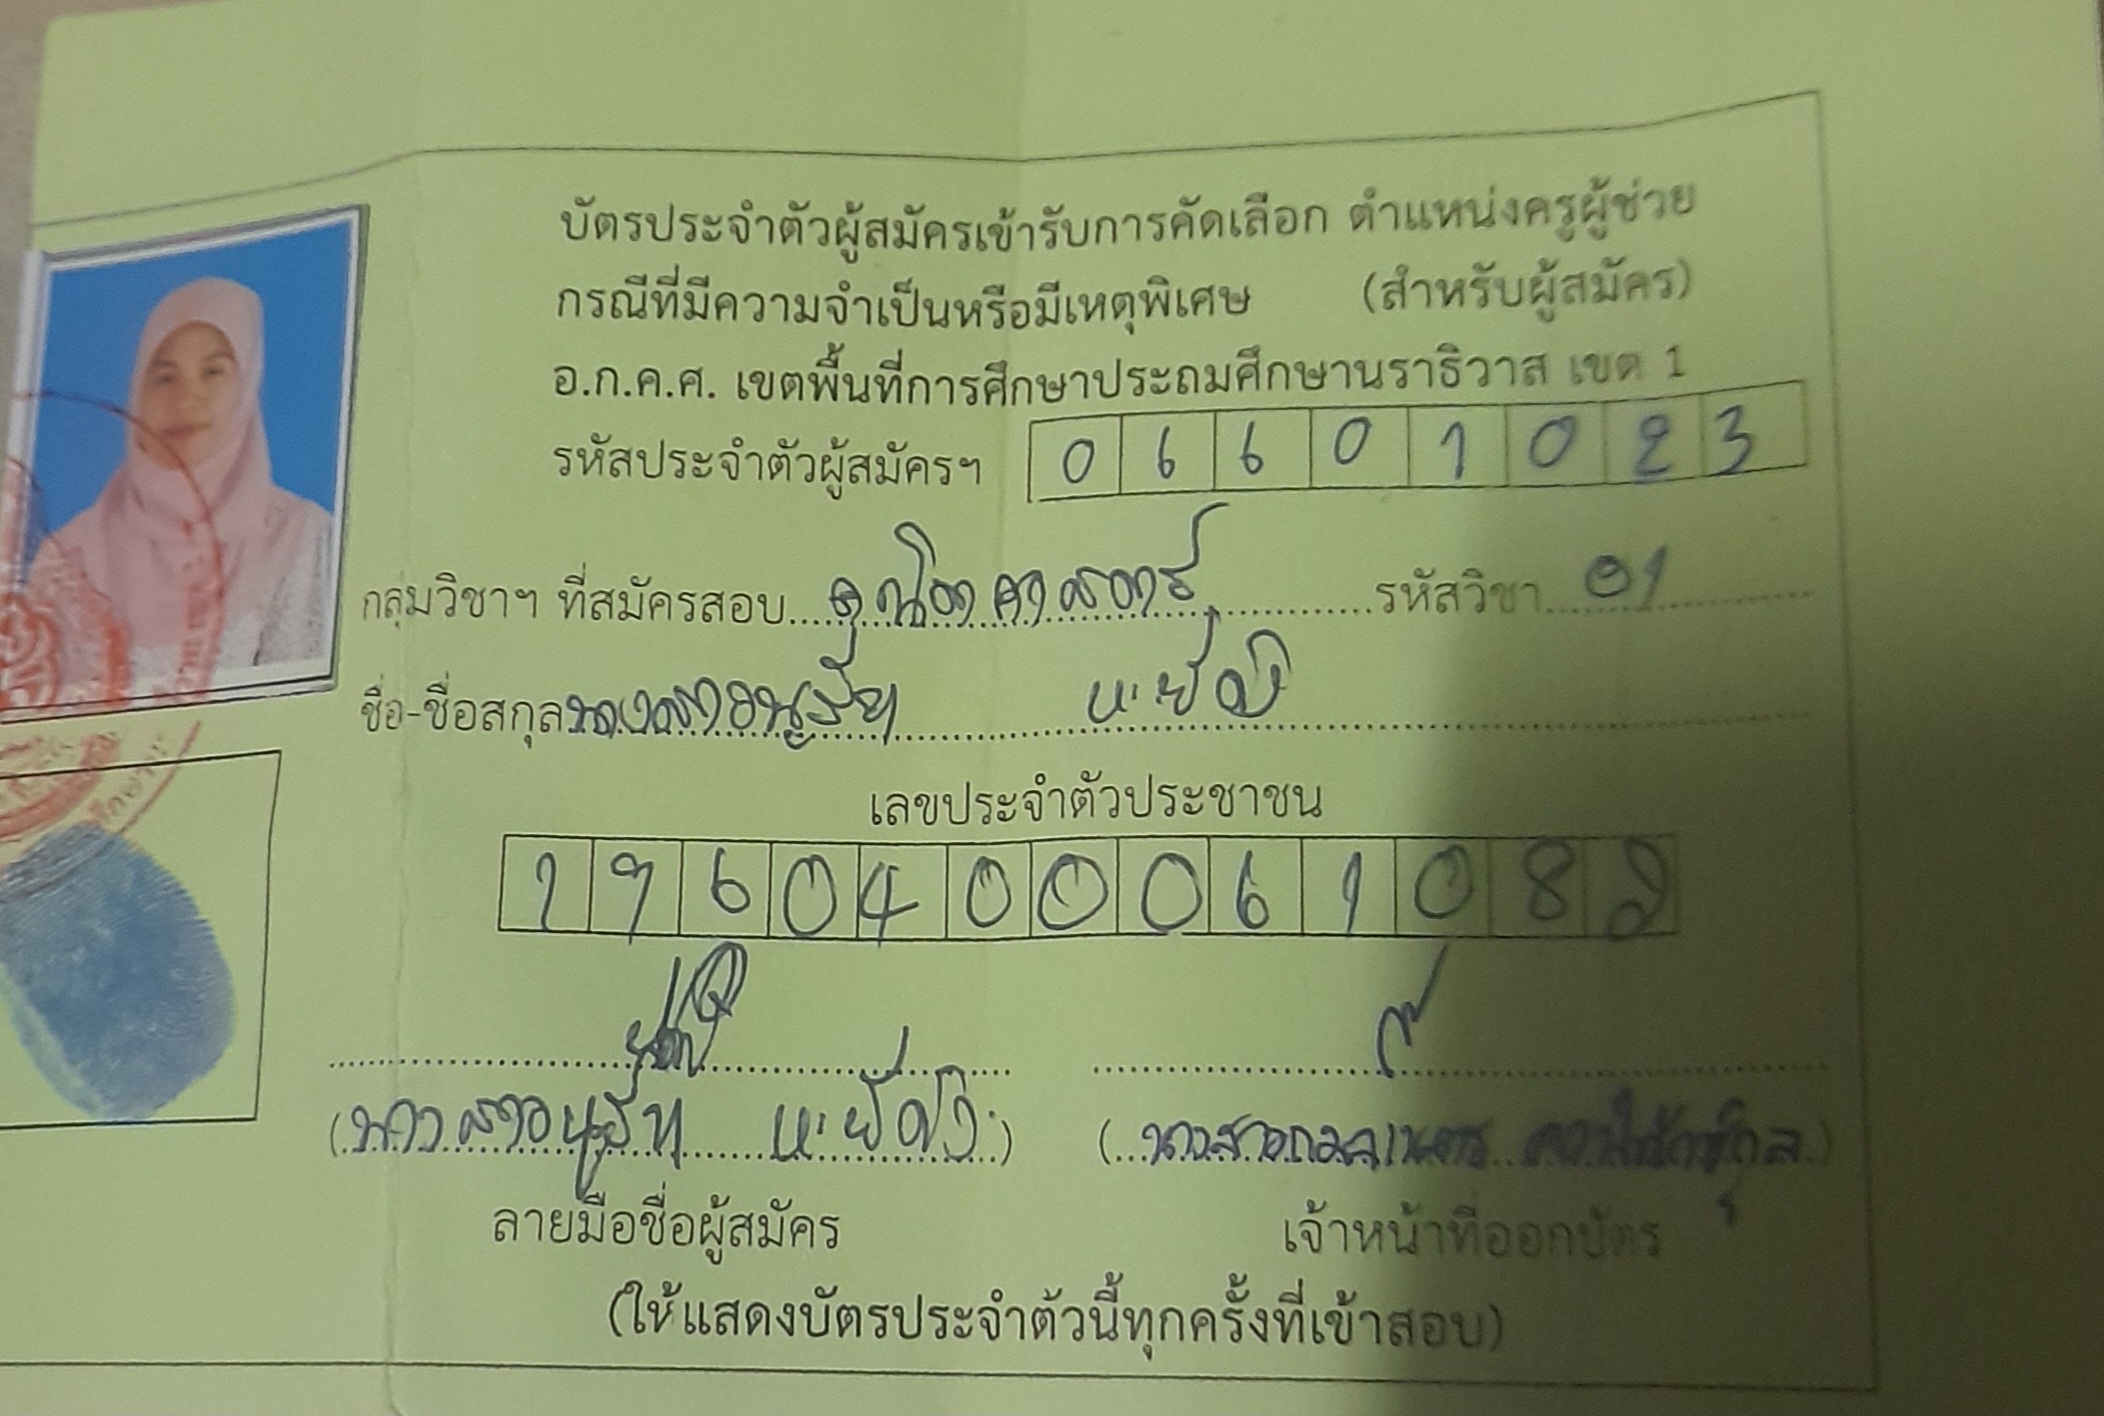 บัตรประจำตัวผู้สมัครเข้ารับการคัดเลือก ตำแหน่งครูผู้ช่วย
กรณีที่มีความจำเป็นหรือมีเหตุพิเศษ (สำหรับผู้สมัคร)
อ.ก.ค.ศ. เขตพื้นที่การศึกษาประถมศึกษานราธิวาส เขต 1
รหัสประจำตัวผู้สมัครฯ 0 6 6 0 1 0 2 3
กลุ่มวิชาฯ ที่สมัครสอบ คณิตศาสตร์ รหัสวิชา 01
ชื่อ-ชื่อสกุล นางสาว
เลขประจำตัวประชาชน
1 9 6 0 4 0 0 0 6 1 0 8 2
(นางสาว )
(นางสาว )
ลายมือชื่อผู้สมัคร เจ้าหน้าที่ออกบัตร
(ให้แสดงบัตรประจำตัวนี้ทุกครั้งที่เข้าสอบ)